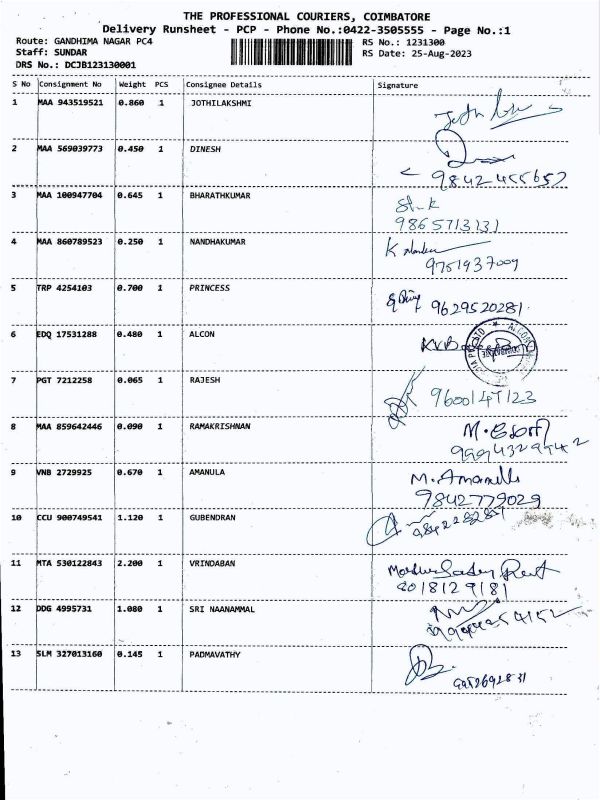 THE PROFESSIONAL COURIERS, COIMBATORE
Delivery Runsheet - PCP - Phone No.:0422-3505555 - Page No.:1
Route: GANDHIMA NAGAR PC4 RS No.: 1231300
Staff: SUNDAR RS Date: 25-Aug-2023
DRS No.: DCJB123130001
S No Consignment No Weight PCS Consignee Details Signature
1 MAA 943519521 0.860 1 JOTHILAKSHMI
2 MAA 569039773 0.450 1 DINESH
3 MAA 100947704 0.645 1 BHARATHKUMAR
9865713131
4 MAA 860789523 0.250 1 NANDHAKUMAR
9751937009
5 TRP 4254103 0.700 1 PRINCESS 9629520281
6 EDQ 17531288 0.480 1 ALCON
7 PGT 7212258 0.065 1 RAJESH
8 MAA 859642446 0.090 1 RAMAKRISHNAN
9 VNB 2729925 0.670 1 AMANULA M. Amanulla
9842779029
10 CCU 900749541 1.120 1 GUBENDRAN
11 MTA 530122843 2.200 1 VRINDABAN
12 DDG 4995731 1.080 1 SRI NAANAMMAL
13 SLM 327013160 0.145 1 PADMAVATHY